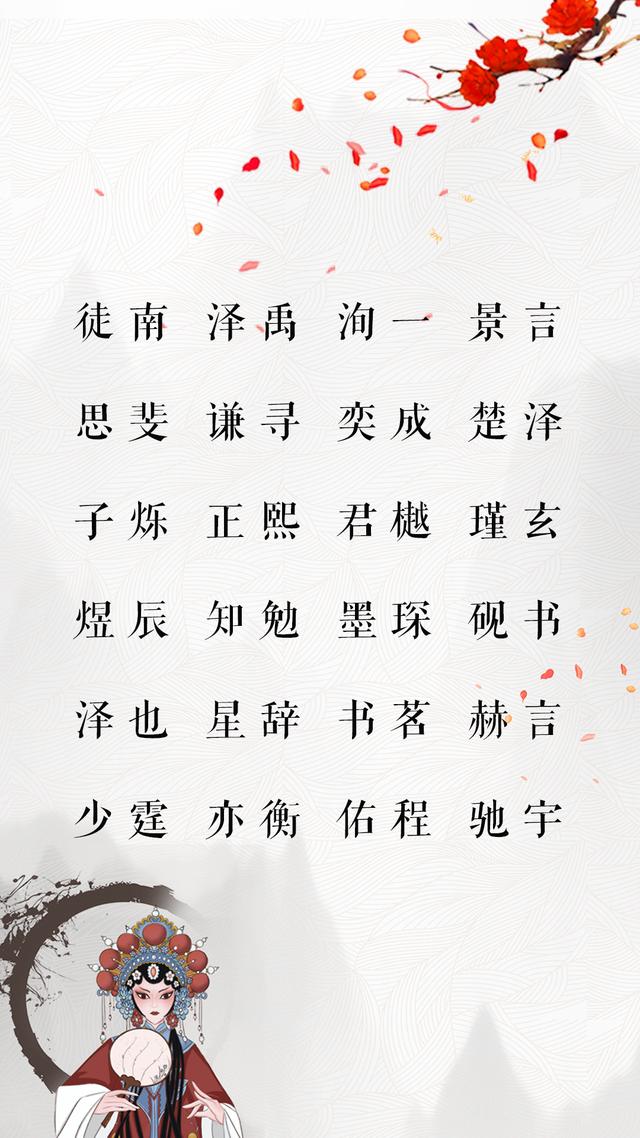 徒南 泽禹 洵一 景言
思斐 谦寻 奕成 楚泽
子烁 正熙 君樾 瑾玄
煜辰 知勉 墨琛 砚书
泽也 星辞 书茗 赫言
少霆 亦衡 佑程 驰宇